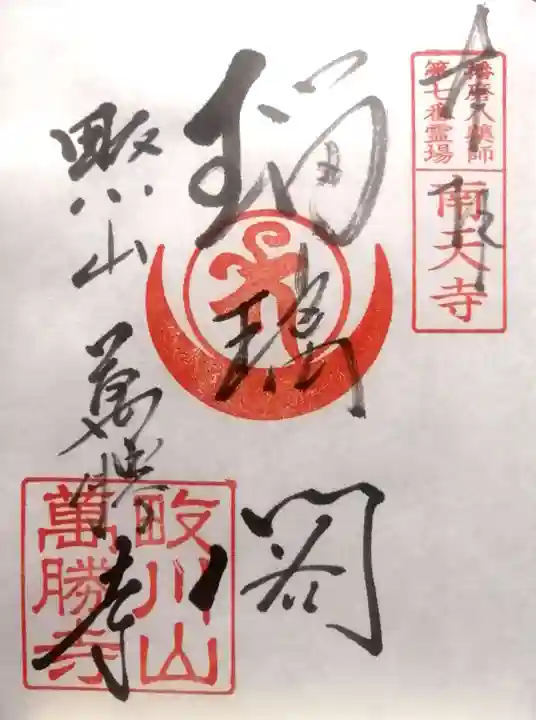 奉拝
播磨八薬師
第七番霊場
南天寺
瑠
璃
閣
畋川山 萬勝寺
畋川山
萬勝寺